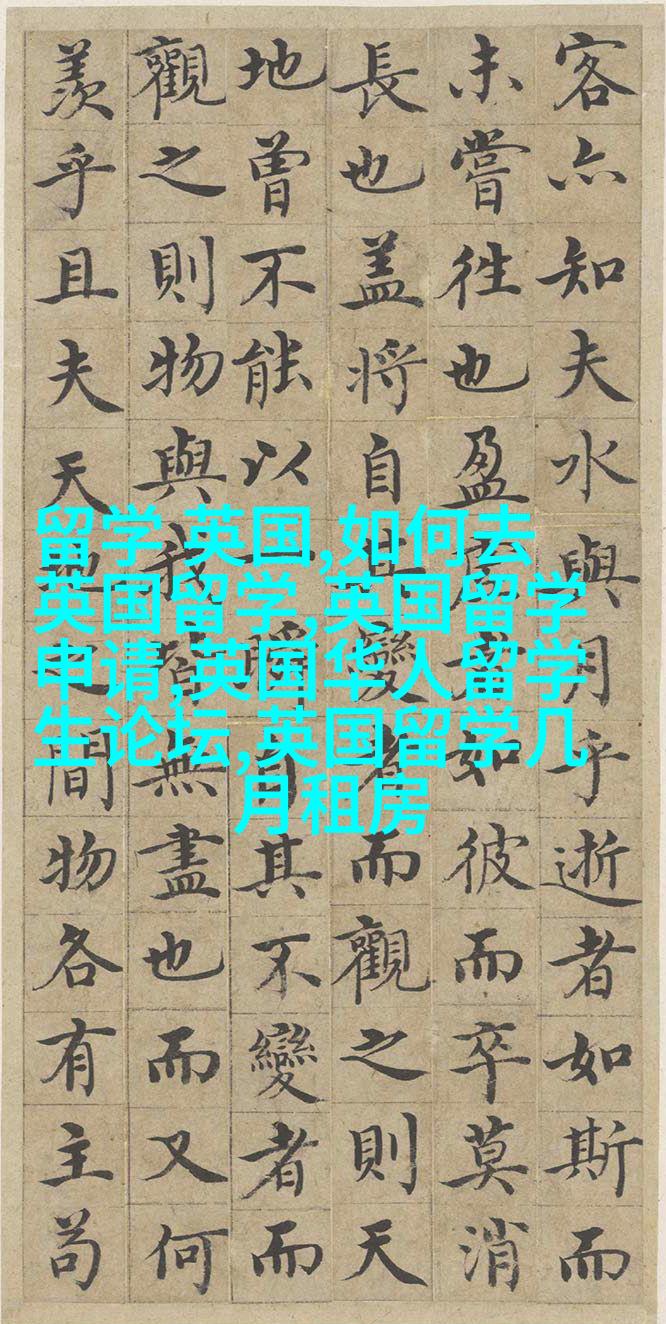 客亦知夫水與月乎逝者如斯而
未嘗往也盈虛者如彼而卒莫消
長也盖將自其變者而觀之則天
地曾不能以一瞬自其不變者而
觀之則物與我皆無盡也而又何
羨乎且夫天地之間物各有主苟
留学 英国,如何去
英国留学,英国留学
申请,英国华人留学
生论坛,英国留学几
月租房